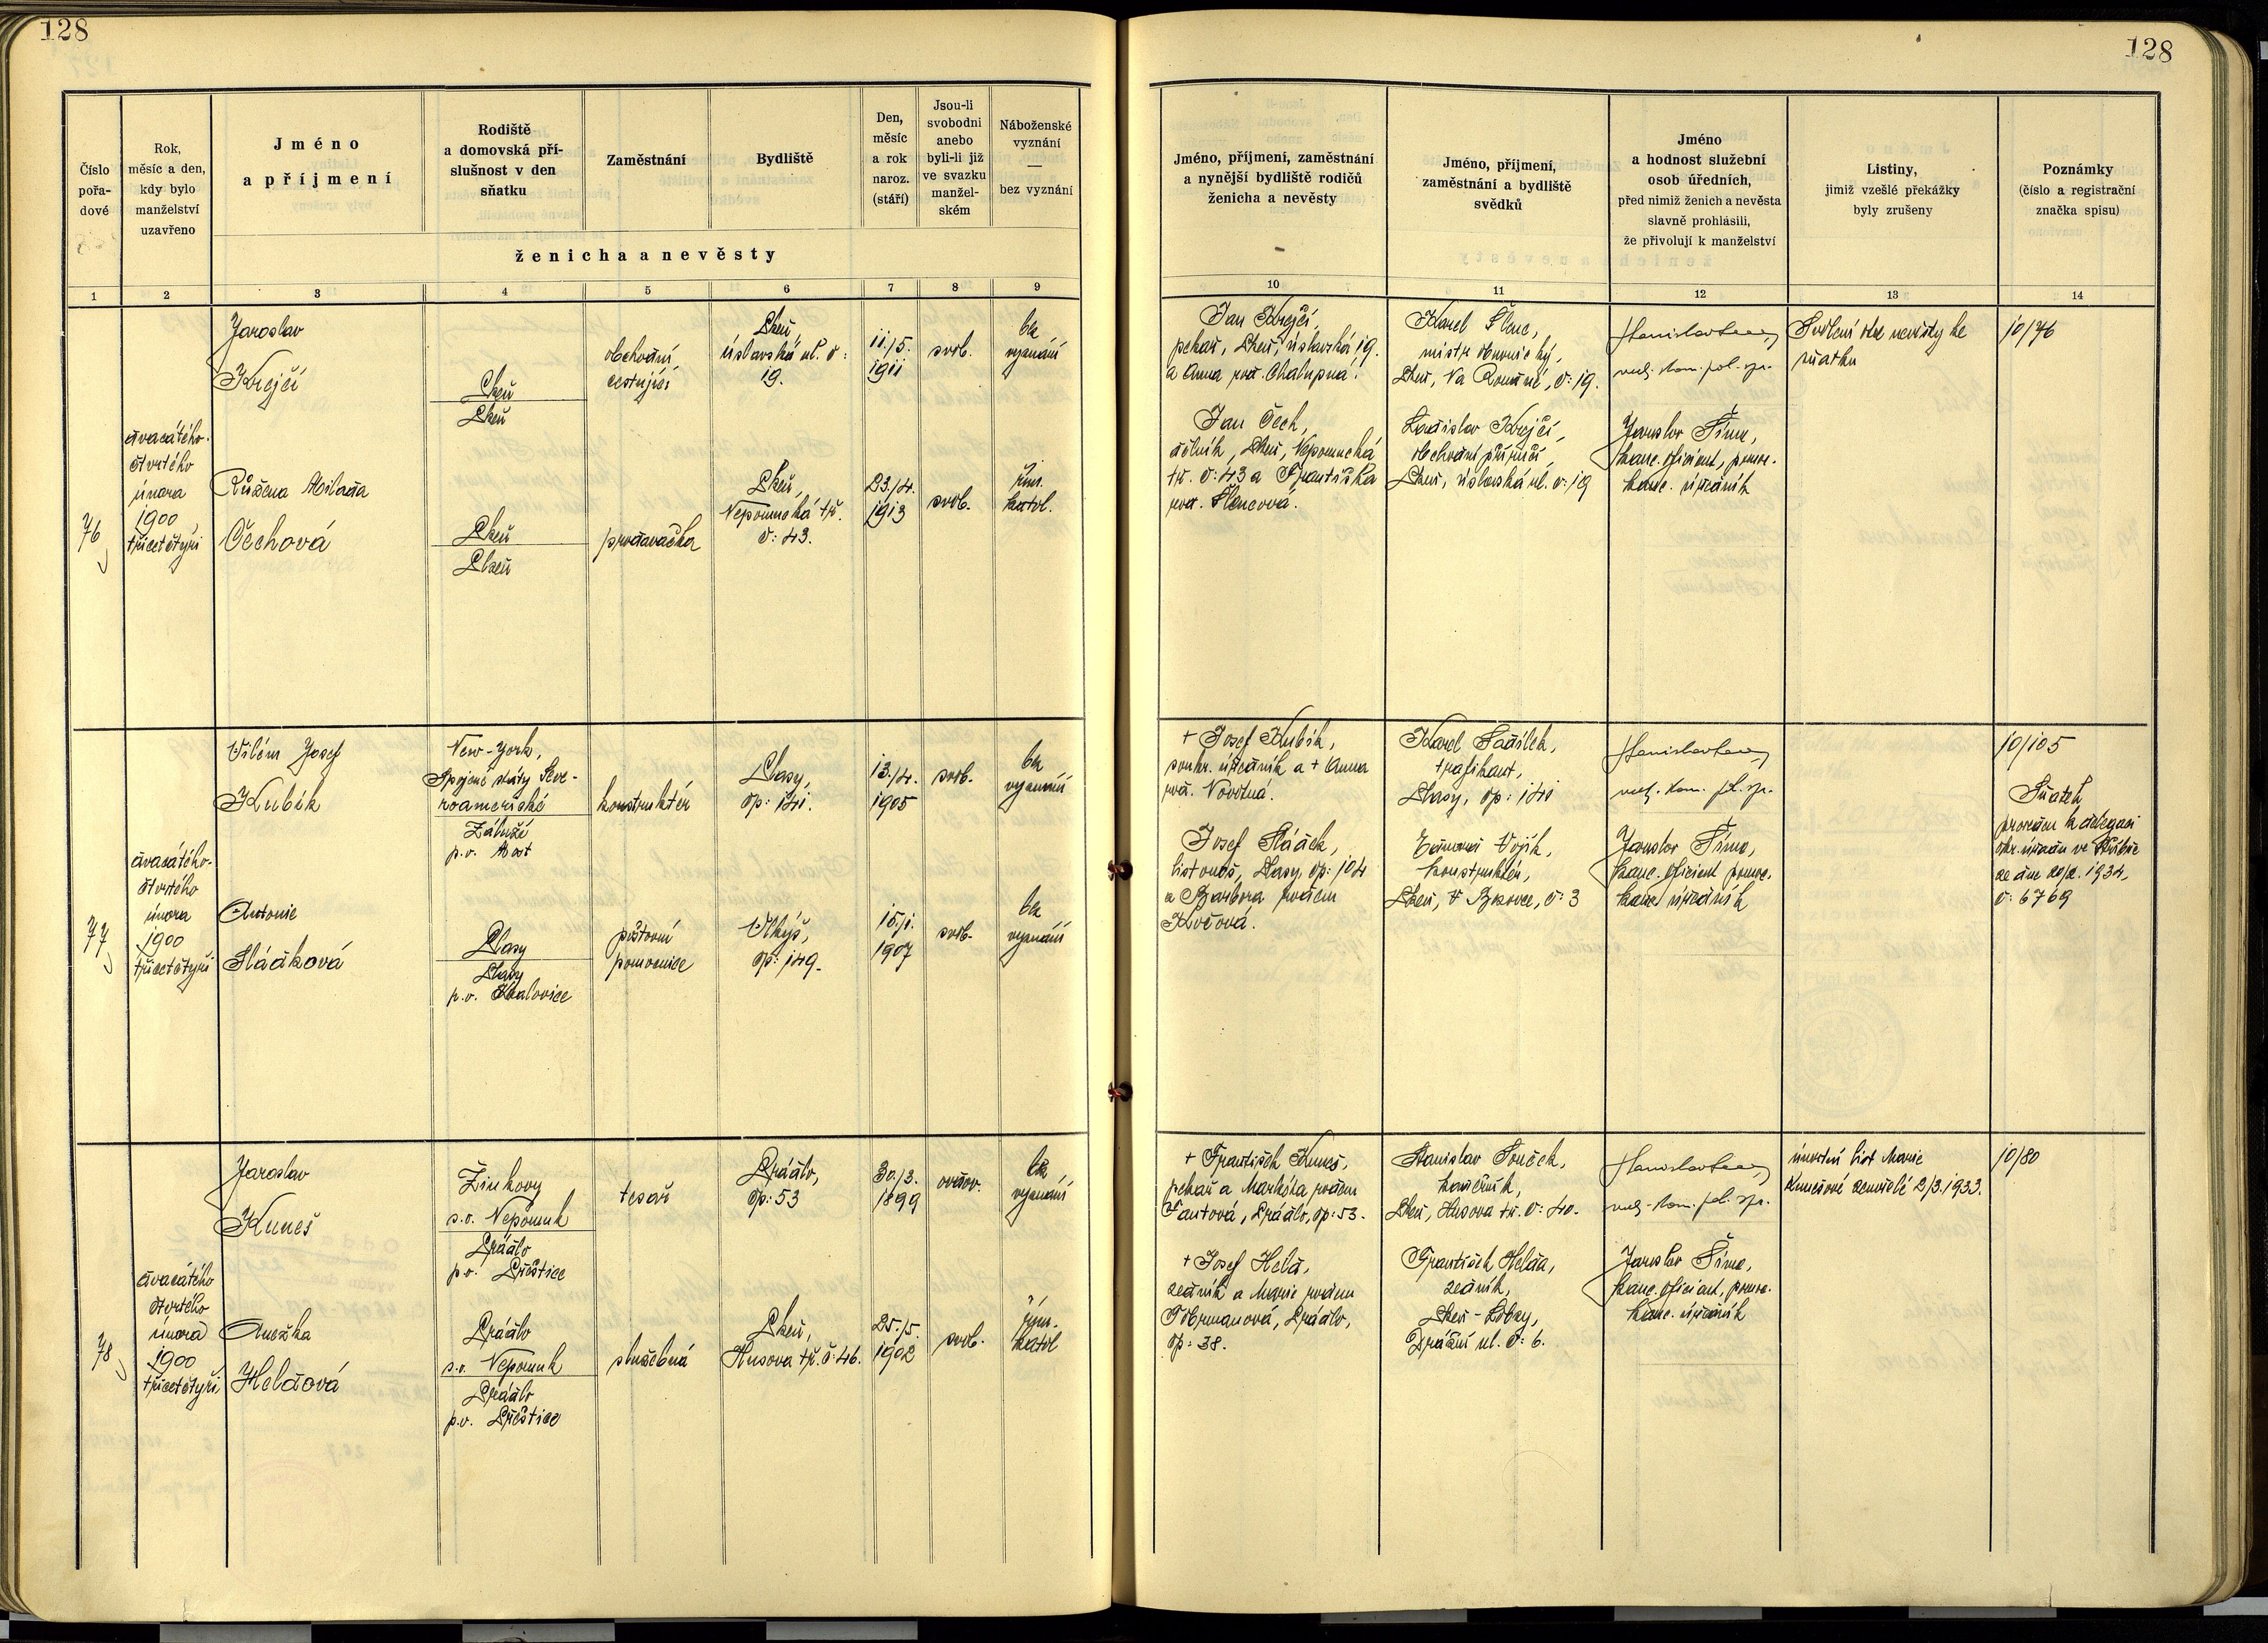 128
128
Číslo
pořa-
dové
Rok,
měsíc a den,
kdy bylo
manželství
uzavřeno
Jméno
a příjmení
Rodiště
a domovská pří-
slušnost v den
sňatku
Zaměstnání
Bydliště
Den,
měsíc
a rok
naroz.
(stáří)
Jsou-li
svobodni
anebo
byli-li již
ve svazku
manžel-
ském
Náboženské
vyznání
—
bez vyznání
ženicha a nevěsty
Jméno, příjmení, zaměstnání
a nynější bydliště rodičů
ženicha a nevěsty
Jméno, příjmení,
zaměstnání a bydliště
svědků
Jméno
a hodnost služební
osob úředních,
před nimiž ženich a nevěsta
slavně prohlásili,
že přivolují k manželství
Listiny,
jimiž vzešlé překážky
byly zrušeny
Poznámky
(číslo a registrační
značka spisu)
1 2 3 4 5 6 7 8 9 10 11 12 13 14
76
dvacátého-
čtvrtého
února
1900
třicetčtyři
Jaroslav
Krejčí
Plzeň
Plzeň
obchodní
cestující
Plzeň,
úslavská ul. č:
19.
11./5.
1911
svob.
bez
vyznání
Růžena Milada
Čechová
Plzeň
Plzeň
prodavačka
Plzeň,
Nepomucká tř.
č: 43.
23./4.
1913
svob.
řím.
katol.
Jan Krejčí,
pekař, Plzeň, úslavská 19.
a Anna roz. Chalupná.
Jan Čech,
dělník, Plzeň, Nepomucká
tř. č: 43 a Františka
roz. Šlencová.
Karel Šlenc,
mistr obuvnický,
Plzeň, Na Roudné, č: 19.
Ladislav Krejčí,
obchodní příručí
Plzeň, úslavská ul. č: 19
vrch. kom. pol. spr.
Jaroslav Šíma,
kanc. oficiant, pomoc.
kanc. úředník
Svolení otce nevěsty ke
sňatku
10/76
77
dvacátého-
čtvrtého
února
1900
třicetčtyři
Vilém Josef
Kubík
New-York,
Spojené státy Seve-
roamerické
Záluží
p.o. Most
konstruktér
Plasy,
čp: 141.
13./4.
1905
svob.
bez
vyznání
Antonie
Sládková
Plasy
Plasy
p.o. Kralovice
poštovní
pomocnice
Vlkýš,
čp: 149.
15./1.
1907
svob.
bez
vyznání
+ Josef Kubík,
soukr. úředník a + Anna
roz. Novotná.
Josef Sládek,
listonoš, Plasy, čp: 104
a Barbora rozem
Karel Sadílek,
trafikant,
Plasy, čp: 141
Vojík,
konstruktér,
č: 3
vrch. kom. pol. spr.
Jaroslav Šíma,
kanc. oficiant pomoc.
kanc. úředník
10/105
Sňatek
proveden z delegaci
okr. úřadu ve Stříbře
ze dne 20/2. 1934,
č: 6769
78
dvacátého
čtvrtého
února
1900
třicetčtyři
Jaroslav
Kuneš
Žinkovy
s.o. Nepomuk
Prádlo
p.o. Přeštice
tesař
Prádlo,
čp: 53
30./3.
1899
ovdov.
bez
vyznání
Anežka
Heldová
Prádlo
s.o. Nepomuk
Prádlo
p.o. Přeštice
služebná
Plzeň,
Husova tř. č: 46.
25./5.
1902
svob.
řím.
katol
+ František Kuneš,
pekař a Markéta rozem
Fautová, Prádlo, čp: 53.
+ Josef Held,
zedník a Marie rozem
Prádlo,
čp: 38.
Stanislav Souček,
Plzeň, Husova tř. č: 40.
František Helda,
zedník,
Plzeň-Lobzy,
ul. č: 6.
vrch. kom. pol. spr.
Jaroslav Šíma,
kanc. oficiant, pomoc.
kanc. úředník
úmrtní list Marie
Kunešové zemřelé 2/3. 1933.
10/80